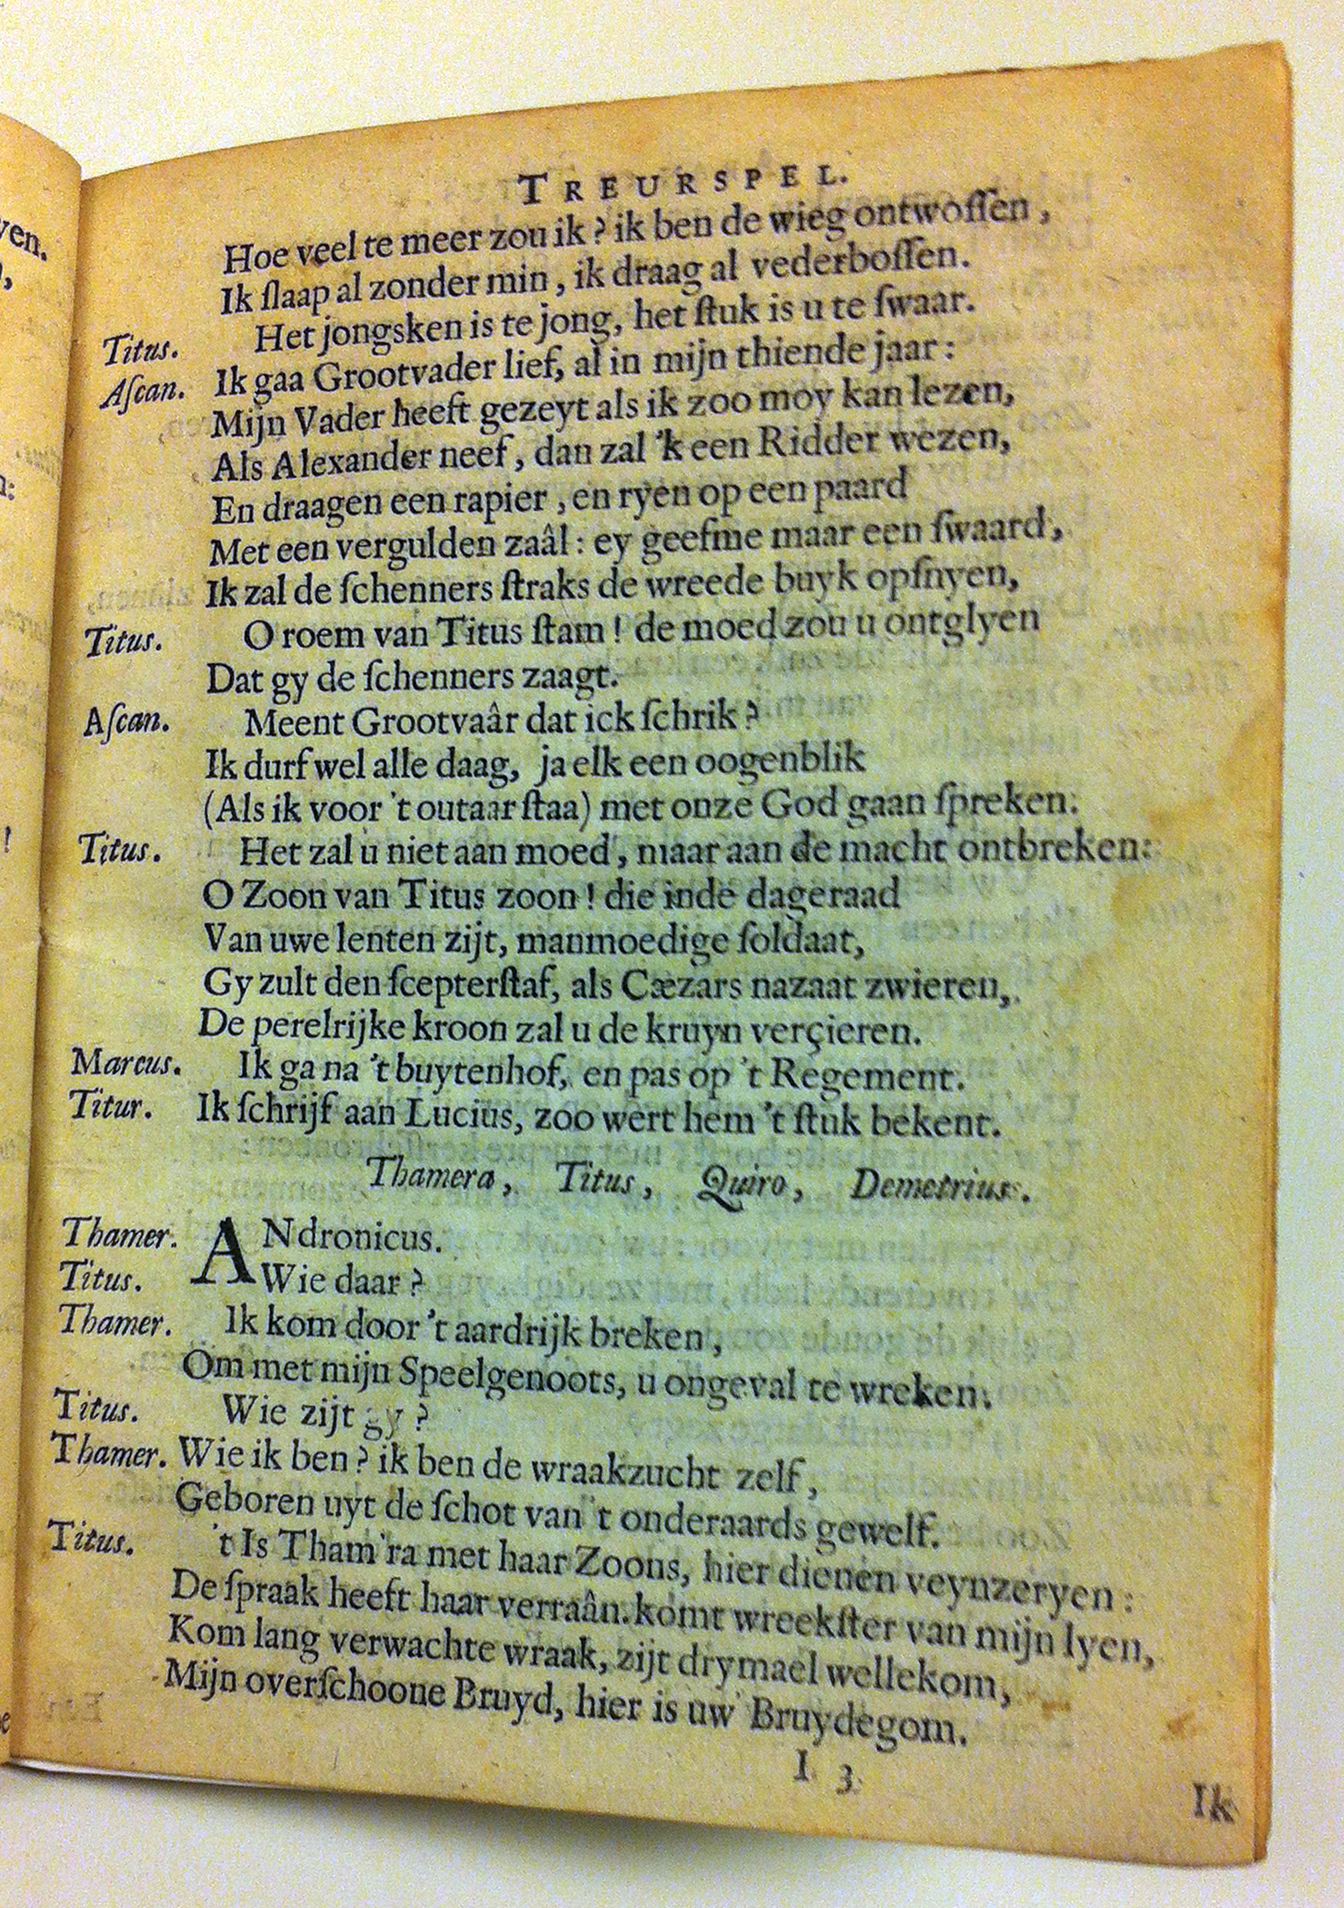 TREURSPEL.
Hoe veel te meer zou ik? ik ben de wieg ontwoſſen,
Ik ſlaap al zonder min, ik draag al vederboſſen.
Titus. Het jongsken is te jong, het ſtuk is u te ſwaar.
Aſcan. Ik gaa Grootvader lief, al in mijn thiende jaar:
Mijn Vader heeft gezeyt als ik zoo moy kan lezen,
Als Alexander neef, dan zal 'k een Ridder wezen,
En draagen een rapier, en ryen op een paard
Met een vergulden zaâl: ey geefme maar een ſwaard,
Ik zal de ſchenners ſtraks de wreede buyk opſnyen,
Titus. O roem van Titus ſtam! de moed zou u ontglyen
Dat gy de ſchenners zaagt.
Aſcan. Meent Grootvaâr dat ick ſchrik?
Ik durf wel alle daag, ja elk een oogenblik
(Als ik voor 't outaar ſtaa) met onze God gaan ſpreken.
Titus. Het zal u niet aan moed, maar aan de macht ontbreken:
O Zoon van Titus zoon! die inde dageraad
Van uwe lenten zijt, manmoedige ſoldaat,
Gy zult den ſcepterſtaf, als Cæzars nazaat zwieren,
De perelrijke kroon zal u de kruyn verçieren.
Marcus. Ik ga na 't buytenhof, en pas op 't Regement.
Titur. Ik ſchrijf aan Lucius, zoo wert hem 't ſtuk bekent.
Thamera, Titus, Quiro, Demetrius.
Thamer. ANdronicus.
Titus. Wie daar?
Thamer. Ik kom door 't aardrijk breken,
Om met mijn Speelgenoots, u ongeval te wreken.
Titus. Wie zijt gy?
Thamer. Wie ik ben? ik ben de wraakzucht zelf,
Geboren uyt de ſchot van 't onderaards gewelf.
Titus. 't Is Tham'ra met haar Zoons, hier dienen veynzeryen:
De ſpraak heeft haar verraân. komt wreekſter van mijn lyen,
Kom lang verwachte wraak, zijt drymael wellekom,
Mijn overſchoone Bruyd, hier is uw Bruydegom.
I 3
Ik